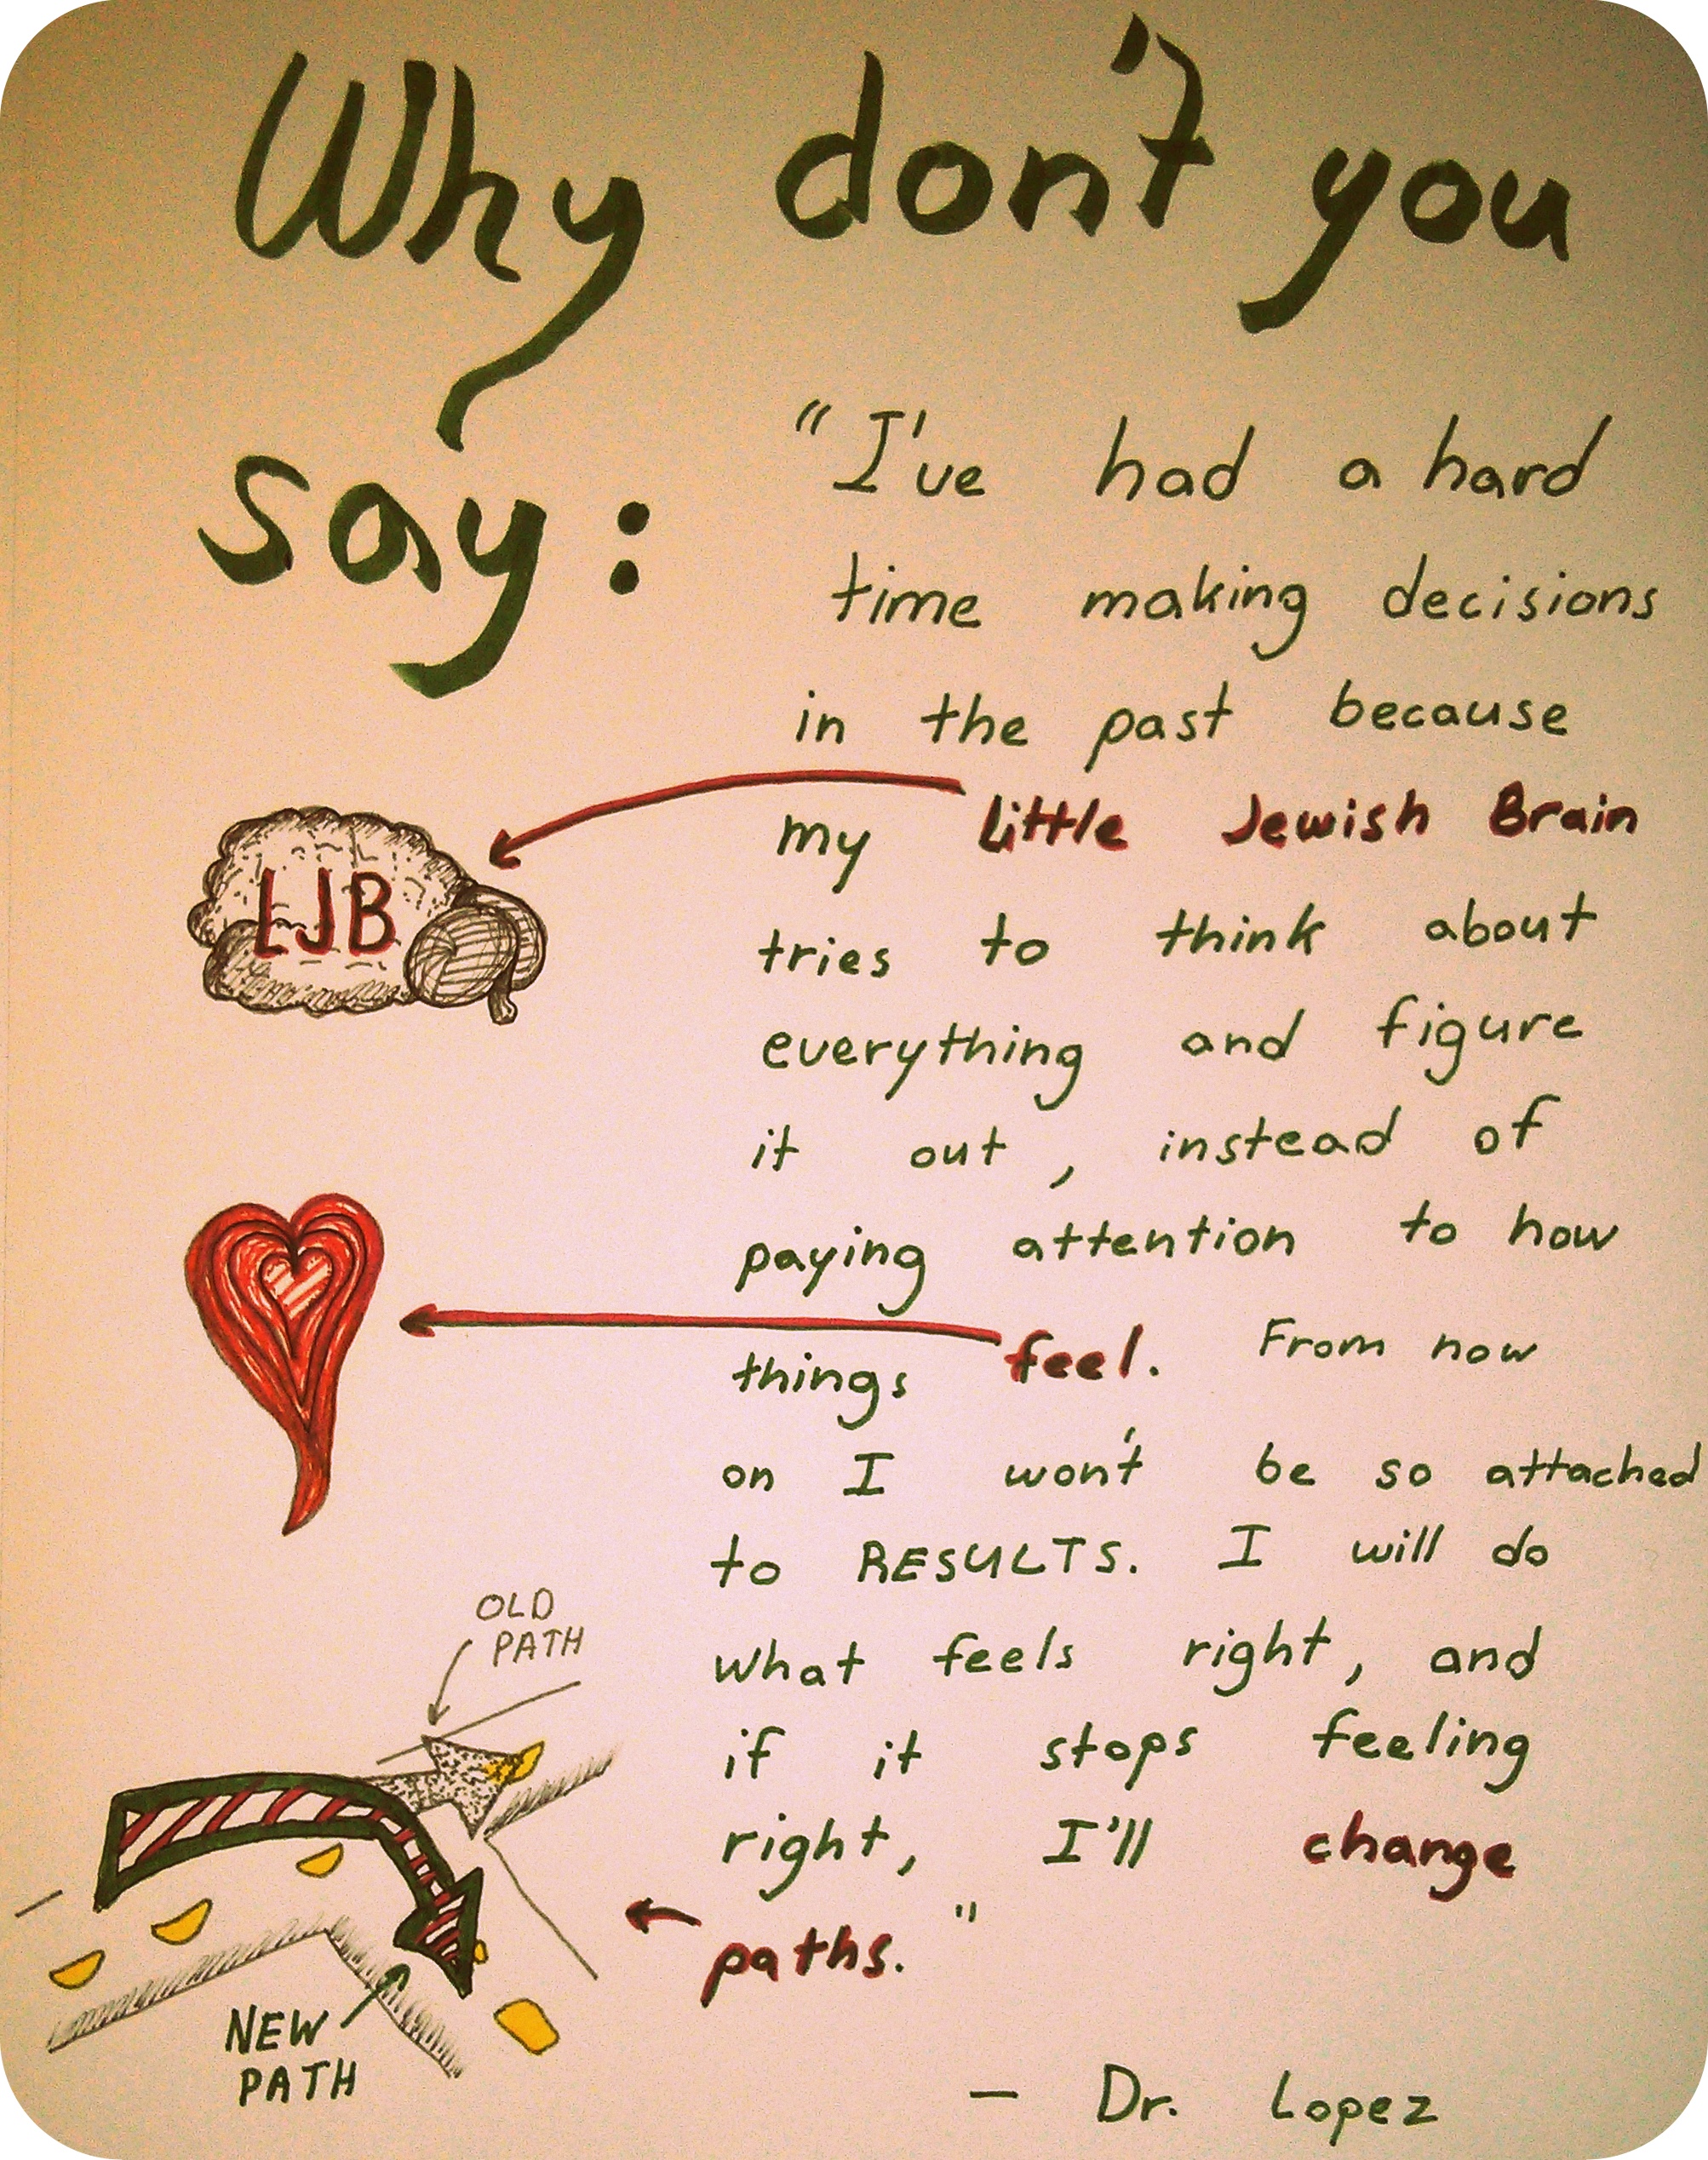 Why don't you
say:
"I've had a hard
time making decisions
in the past because
my Little Jewish Brain
LJB
tries to think about
everything and figure
it out, instead of
paying attention to how
things feel. From now
on I won't be so attached
to RESULTS. I will do
what feels right, and
if it stops feeling
right, I'll change
paths."
OLD
PATH
NEW
PATH
- Dr. Lopez